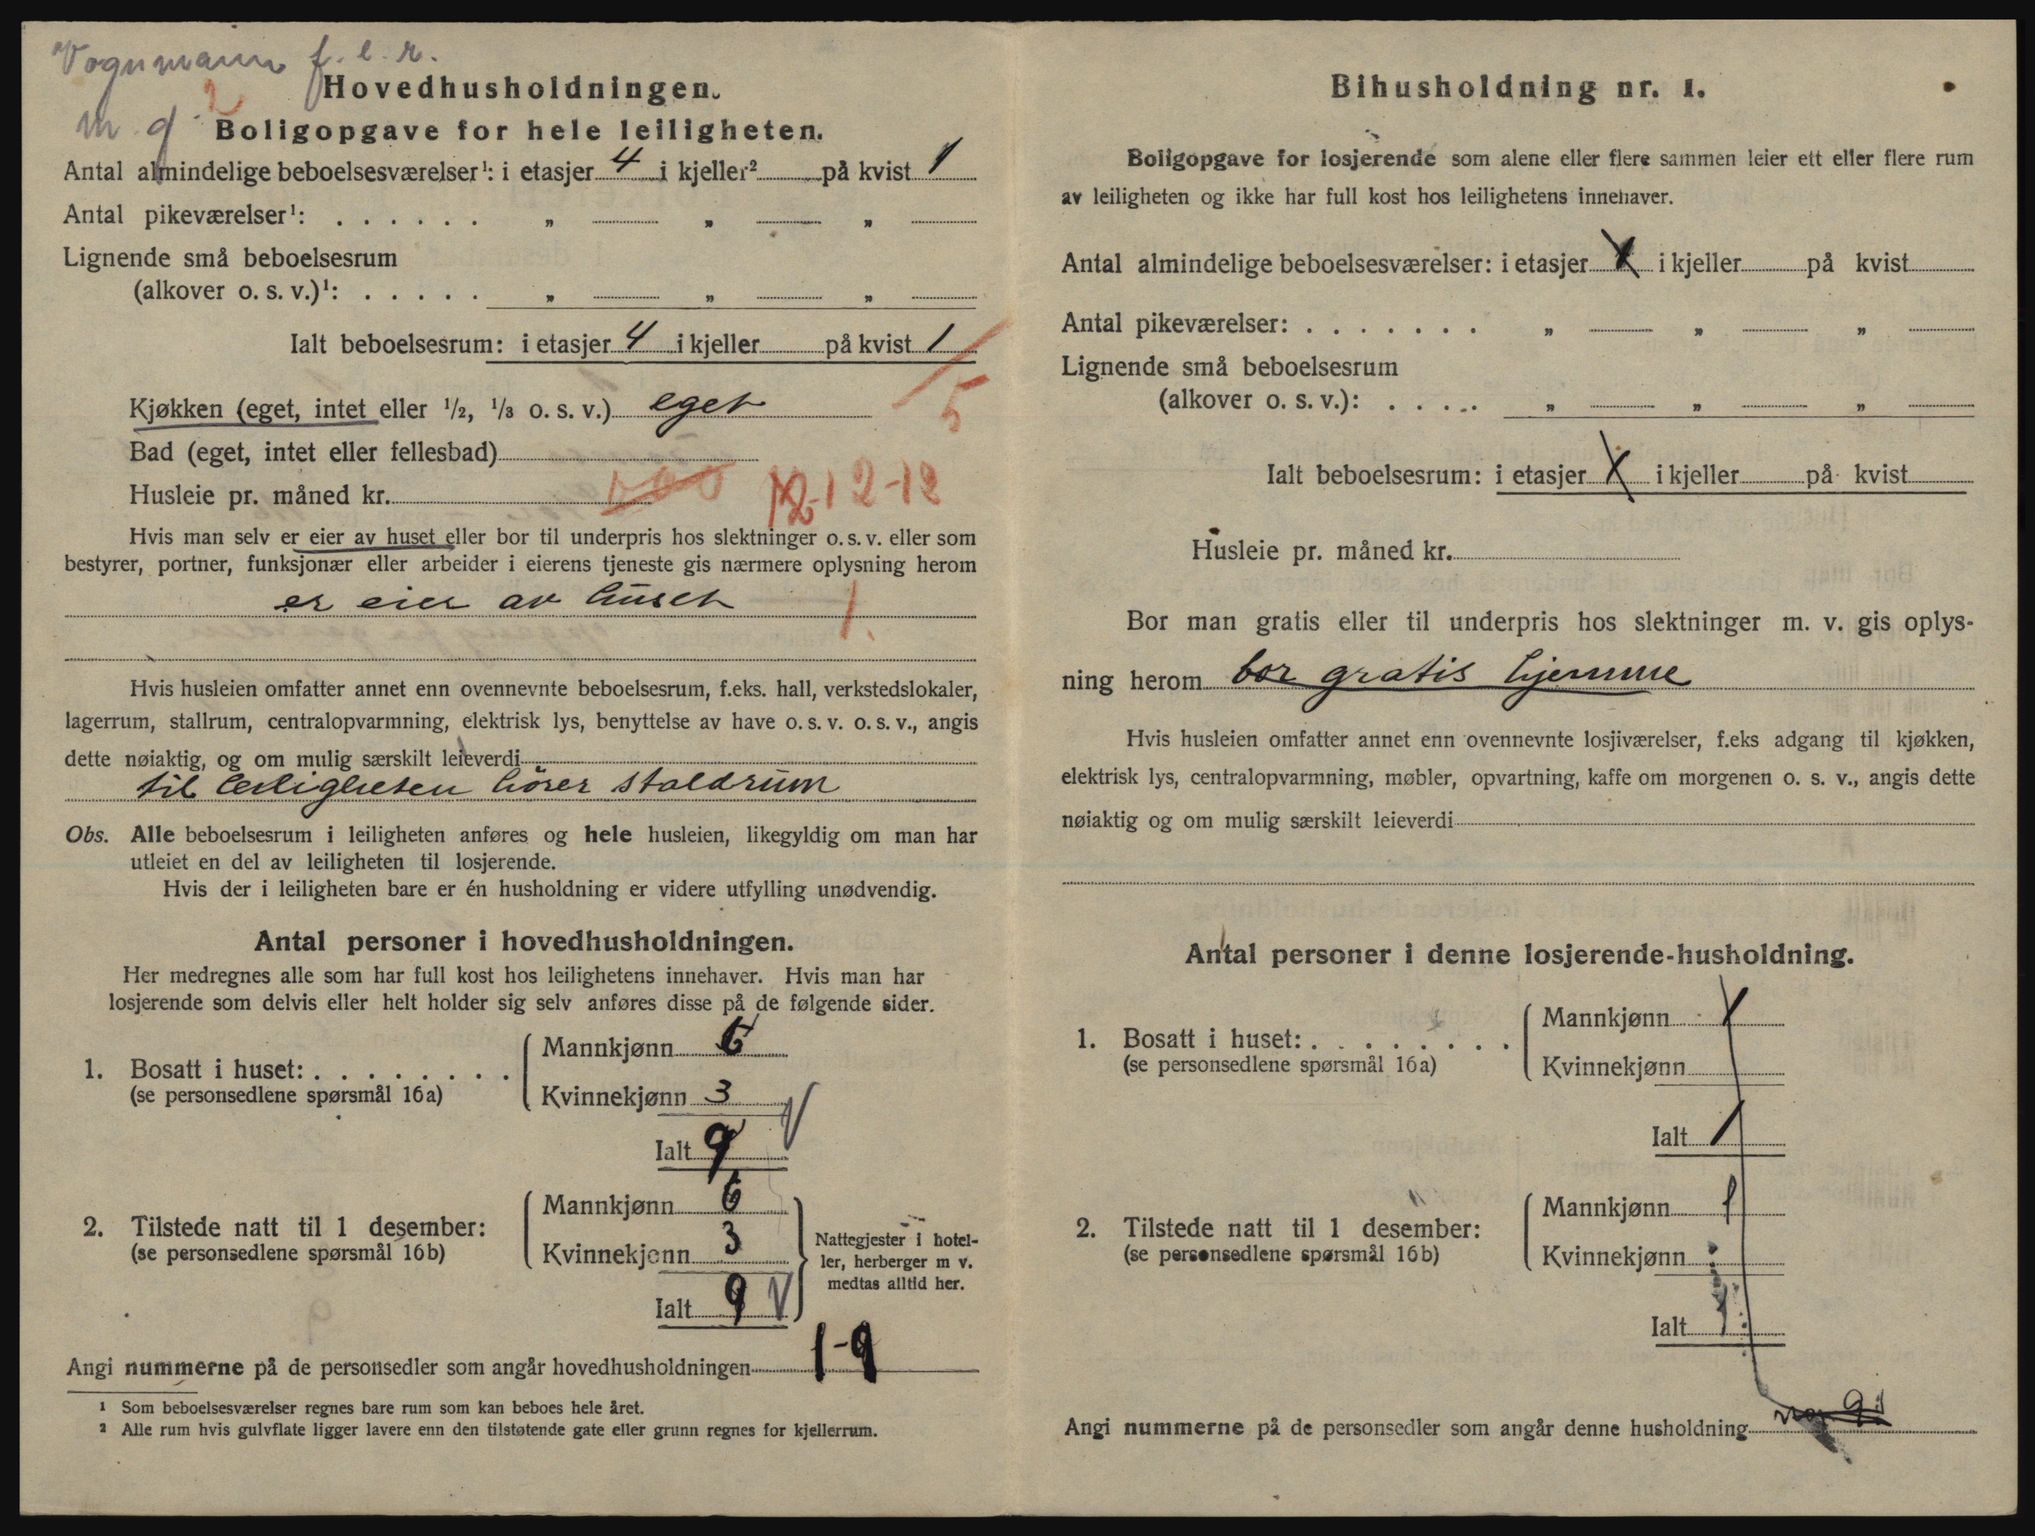 Vognmann f. e. r.
Hovedhusholdningen.
m. g. 2
Boligopgave for hele leiligheten.
Antal almindelige beboelsesværelser¹: i etasjer 4 i kjeller² på kvist 1
Antal pikeværelser¹: . . . . . . „ „ „
Lignende små beboelsesrum
(alkover o. s. v.)¹: . . . . . „ „ „
Ialt beboelsesrum: i etasjer 4 i kjeller på kvist 1
5
Kjøkken (eget, intet eller ½, ⅓ o. s. v.) eget
Bad (eget, intet eller fellesbad)
Husleie pr. måned kr. 12-12
Hvis man selv er eier av huset eller bor til underpris hos slektninger o. s. v. eller som
bestyrer, portner, funksjonær eller arbeider i eierens tjeneste gis nærmere oplysning herom
er eier av huset 1.
Hvis husleien omfatter annet enn ovennevnte beboelsesrum, f.eks. hall, verkstedslokaler,
lagerrum, stallrum, centralopvarmning, elektrisk lys, benyttelse av have o. s. v. o. s. v., angis
dette nøiaktig, og om mulig særskilt leieverdi
til leiligheten hörer staldrum
Obs. Alle beboelsesrum i leiligheten anføres og hele husleien, likegyldig om man har
utleiet en del av leiligheten til losjerende.
Hvis der i leiligheten bare er én husholdning er videre utfylling unødvendig.
Antal personer i hovedhusholdningen.
Her medregnes alle som har full kost hos leilighetens innehaver. Hvis man har
losjerende som delvis eller helt holder sig selv anføres disse på de følgende sider.
1. Bosatt i huset: . . . . . . . . Mannkjønn 6
(se personsedlene spørsmål 16a) Kvinnekjønn 3
Ialt 9
2. Tilstede natt til 1 desember: Mannkjønn 6
(se personsedlene spørsmål 16b) Kvinnekjønn 3
Ialt 9
Nattegjester i hotel-
ler, herberger m v.
medtas alltid her.
Angi nummerne på de personsedler som angår hovedhusholdningen 1-9
¹ Som beboelsesværelser regnes bare rum som kan beboes hele året.
² Alle rum hvis gulvflate ligger lavere enn den tilstøtende gate eller grunn regnes for kjellerrum.
Bihusholdning nr. 1.
Boligopgave for losjerende som alene eller flere sammen leier ett eller flere rum
av leiligheten og ikke har full kost hos leilighetens innehaver.
Antal almindelige beboelsesværelser: i etasjer 1 i kjeller på kvist
Antal pikeværelser: . . . . . . . „ „ „
Lignende små beboelsesrum
(alkover o. s. v.): . . . . „ „ „
Ialt beboelsesrum: i etasjer 1 i kjeller på kvist
Husleie pr. måned kr.
Bor man gratis eller til underpris hos slektninger m. v. gis oplys-
ning herom bor gratis hjemme
Hvis husleien omfatter annet enn ovennevnte losjiværelser, f.eks adgang til kjøkken,
elektrisk lys, centralopvarmning, møbler, opvartning, kaffe om morgenen o. s. v., angis dette
nøiaktig og om mulig særskilt leieverdi
Antal personer i denne losjerende-husholdning.
1. Bosatt i huset: . . . . . . . . Mannkjønn 1
(se personsedlene spørsmål 16a) Kvinnekjønn
Ialt 1
2. Tilstede natt til 1 desember: Mannkjønn 1
(se personsedlene spørsmål 16b) Kvinnekjønn
Ialt 1
Angi nummerne på de personsedler som angår denne husholdning